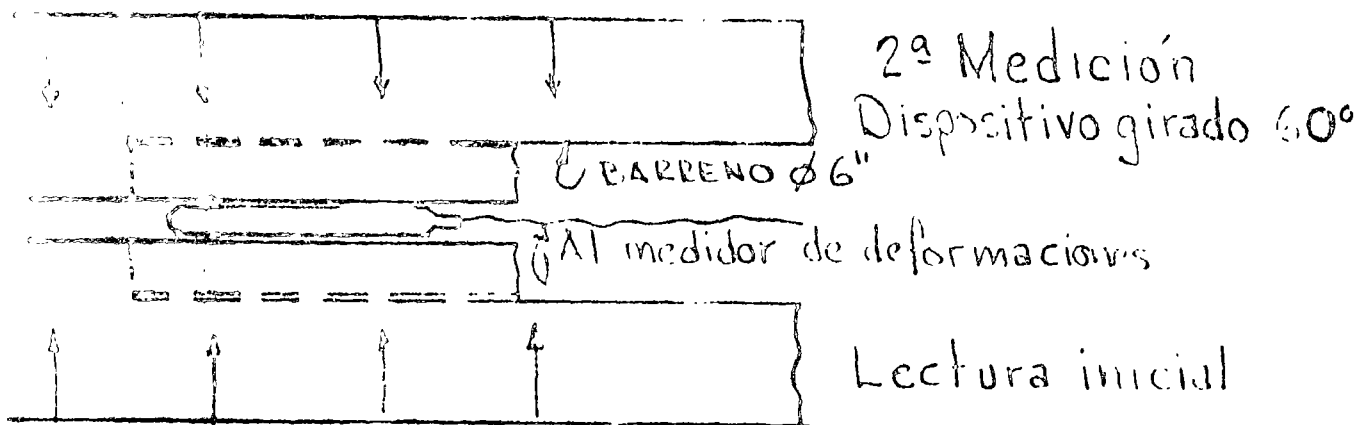 2ª Medición
Dispositivo girado 60°
BARRENO ϕ 6"
Al medidor de deformaciones
Lectura inicial